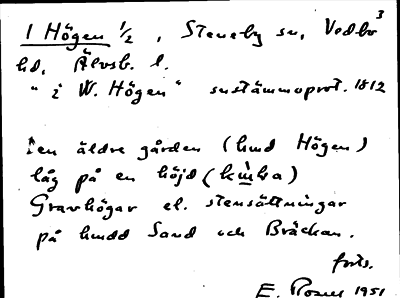 1 Högen ½, Steneby sn, Vedbo
3
hd, Älvsb. l.
"i W. Högen" sustämmoprot. 1812
Den äldre gården (hmd Högen)
låg på en höjd (
Gravhögar el. stensättningar
på hmdd Sand och Bräckan.
forts.
E. Rosell 1951